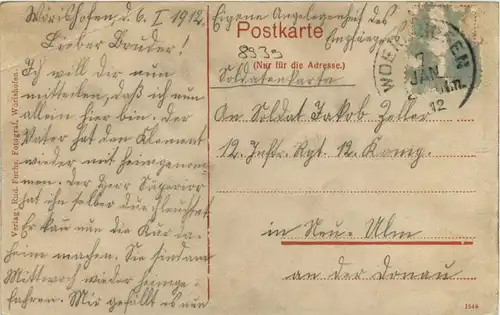 Wörishofen d. 6. I 1912.
Lieber Bruder!
Ich will Dir nun
mitteilen, daß ich nun
allein hier bin. Der
Vater hat den Klement
wieder mit heimgenom-
men. Der Herr Superior
hat ihn selber durchleuchtet
Er kann nun die Kur da-
heim machen. Sie sind am
Mittwoch wieder heimge-
fahren. Mir gefällt es nun
Verlag: Rud. Fuchs, Fotograf, Wörishofen
Eigene Angelegenheit des
Empfängers
Postkarte
8939
(Nur für die Adresse.)
Soldatenkarte
WOERISHOFEN
7.
JAN.
12
An Soldat Jakob Zeller
12. Inftr. Rgt. 12. Komp.
in Neu-Ulm
an der Donau